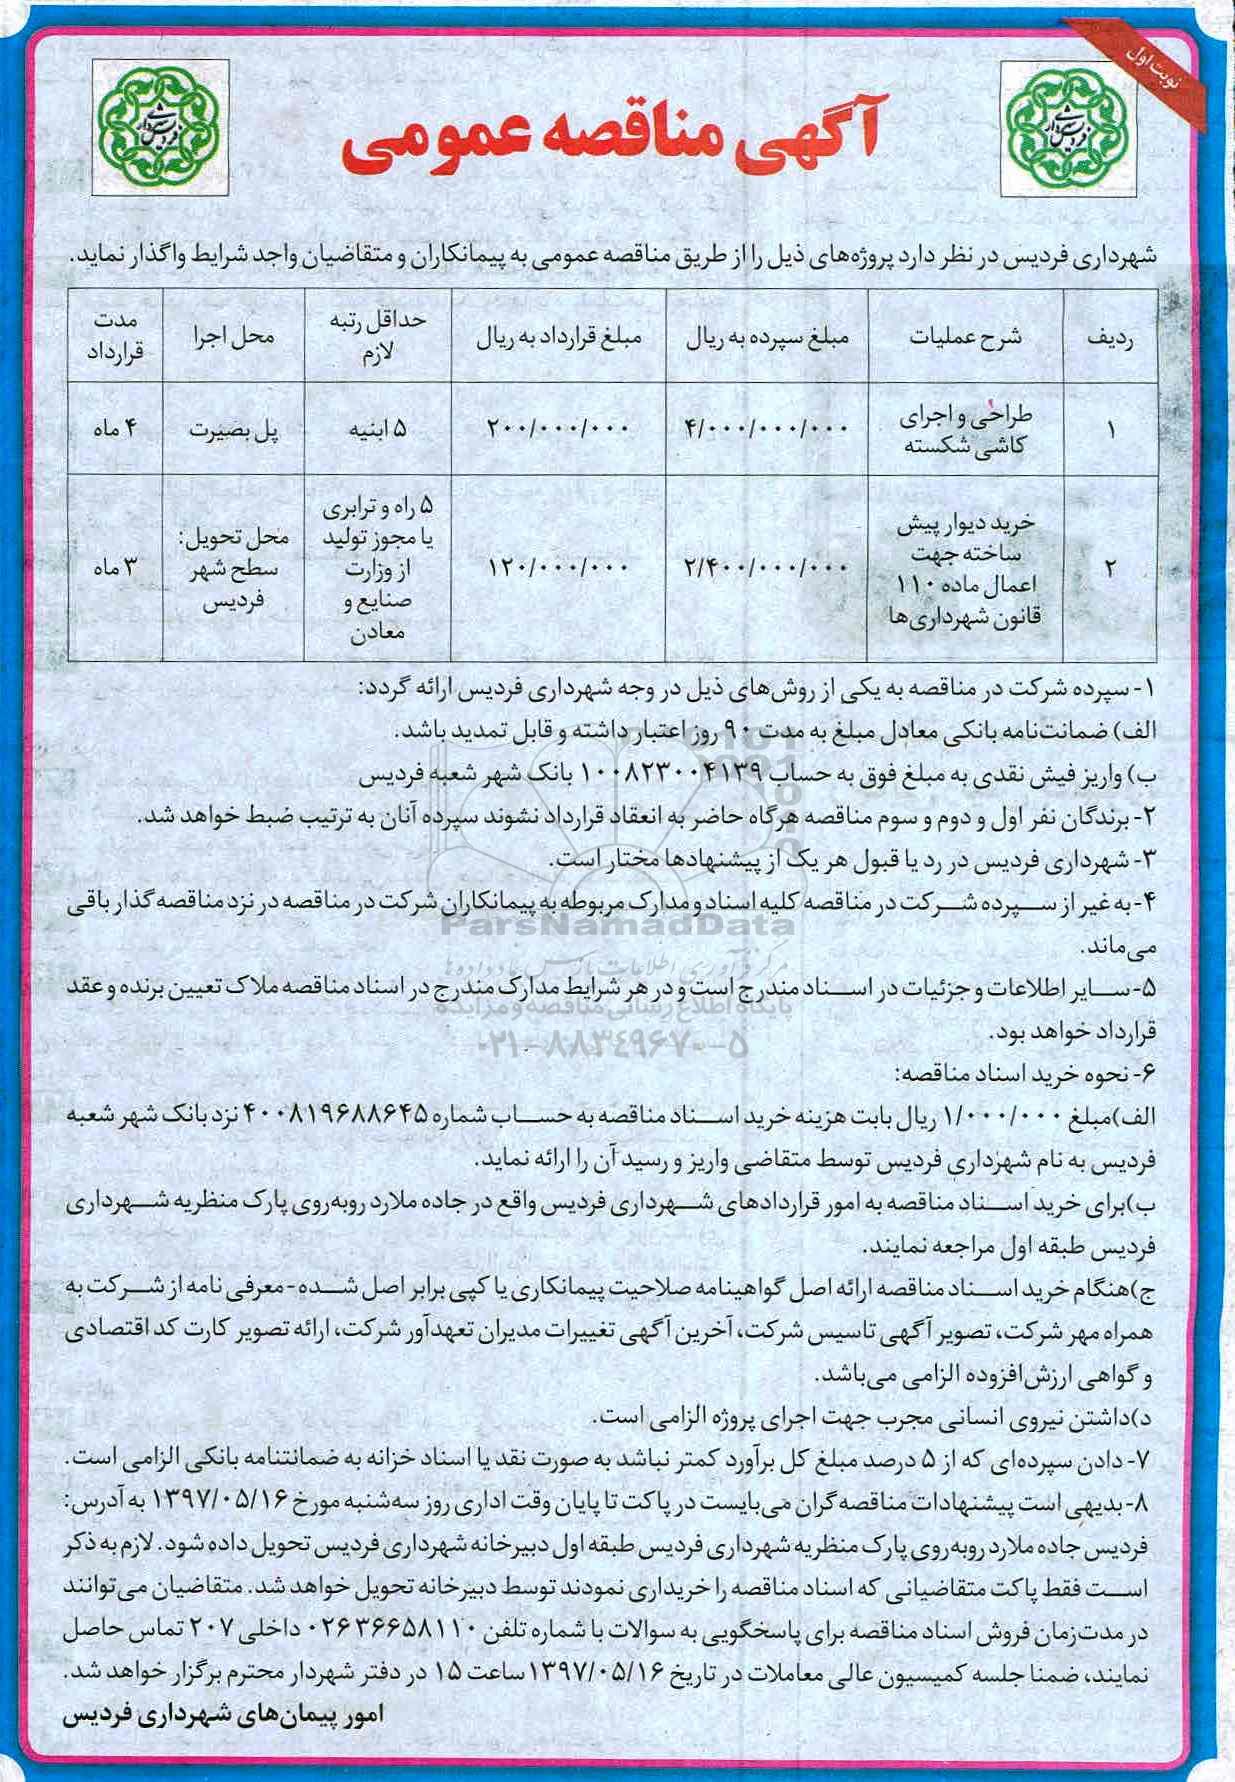 نوبت اول
آگهی مناقصه عمومی
شهرداری فردیس در نظر دارد پروژه‌های ذیل را از طریق مناقصه عمومی به پیمانکاران و متقاضیان واجد شرایط واگذار نماید.
ردیف	شرح عملیات	مبلغ سپرده به ریال	مبلغ قرارداد به ریال	حداقل رتبه لازم	محل اجرا	مدت قرارداد
۱	طراحی و اجرای کاشی شکسته	۴/۰۰۰/۰۰۰/۰۰۰	۲۰۰/۰۰۰/۰۰۰	۵ ابنیه	پل بصیرت	۴ ماه
۲	خرید دیوار پیش ساخته جهت اعمال ماده ۱۱۰ قانون شهرداری‌ها	۲/۴۰۰/۰۰۰/۰۰۰	۱۲۰/۰۰۰/۰۰۰	۵ راه و ترابری یا مجوز تولید از وزارت صنایع و معادن	محل تحویل: سطح شهر فردیس	۳ ماه
۱- سپرده شرکت در مناقصه به یکی از روش‌های ذیل در وجه شهرداری فردیس ارائه گردد:
الف) ضمانت‌نامه بانکی معادل مبلغ به مدت ۹۰ روز اعتبار داشته و قابل تمدید باشد.
ب) واریز فیش نقدی به مبلغ فوق به حساب ۱۰۰۸۲۳۰۰۴۱۳۹ بانک شهر شعبه فردیس
۲- برندگان نفر اول و دوم و سوم مناقصه هرگاه حاضر به انعقاد قرارداد نشوند سپرده آنان به ترتیب ضبط خواهد شد.
۳- شهرداری فردیس در رد یا قبول هر یک از پیشنهادها مختار است.
۴- به غیر از سپرده شرکت در مناقصه کلیه اسناد و مدارک مربوطه به پیمانکاران شرکت در مناقصه در نزد مناقصه گذار باقی
می‌ماند.
ParsNamadData
مرکز فرآوری اطلاعات پارس نماد داده‌ها
۵- سایر اطلاعات و جزئیات در اسناد مندرج است و در هر شرایط مدارک مندرج در اسناد مناقصه ملاک تعیین برنده و عقد
پایگاه اطلاع رسانی مناقصه و مزایده
قرارداد خواهد بود.
۰۲۱-۸۸۳۴۹۶۷۰-۵
۶- نحوه خرید اسناد مناقصه:
الف)مبلغ ۱/۰۰۰/۰۰۰ ریال بابت هزینه خرید اسناد مناقصه به حساب شماره ۴۰۰۸۱۹۶۸۸۶۴۵ نزد بانک شهر شعبه
فردیس به نام شهرداری فردیس توسط متقاضی واریز و رسید آن را ارائه نماید.
ب)برای خرید اسناد مناقصه به امور قراردادهای شهرداری فردیس واقع در جاده ملارد روبه‌روی پارک منظریه شهرداری
فردیس طبقه اول مراجعه نمایند.
ج)هنگام خرید اسناد مناقصه ارائه اصل گواهینامه صلاحیت پیمانکاری یا کپی برابر اصل شده - معرفی نامه از شرکت به
همراه مهر شرکت، تصویر آگهی تاسیس شرکت، آخرین آگهی تغییرات مدیران تعهدآور شرکت، ارائه تصویر کارت کد اقتصادی
و گواهی ارزش‌افزوده الزامی می‌باشد.
د)داشتن نیروی انسانی مجرب جهت اجرای پروژه الزامی است.
۷- دادن سپرده‌ای که از ۵ درصد مبلغ کل برآورد کمتر نباشد به صورت نقد یا اسناد خزانه به ضمانتنامه بانکی الزامی است.
۸- بدیهی است پیشنهادات مناقصه‌گران می‌بایست در پاکت تا پایان وقت اداری روز سه‌شنبه مورخ ۱۳۹۷/۰۵/۱۶ به آدرس:
فردیس جاده ملارد روبه‌روی پارک منظریه شهرداری فردیس طبقه اول دبیرخانه شهرداری فردیس تحویل داده شود. لازم به ذکر
است فقط پاکت متقاضیانی که اسناد مناقصه را خریداری نمودند توسط دبیرخانه تحویل خواهد شد. متقاضیان می‌توانند
در مدت‌زمان فروش اسناد مناقصه برای پاسخگویی به سوالات با شماره تلفن ۰۲۶۳۶۶۵۸۱۱۰ داخلی ۲۰۷ تماس حاصل
نمایند، ضمنا جلسه کمیسیون عالی معاملات در تاریخ ۱۳۹۷/۰۵/۱۶ ساعت ۱۵ در دفتر شهردار محترم برگزار خواهد شد.
امور پیمان‌های شهرداری فردیس